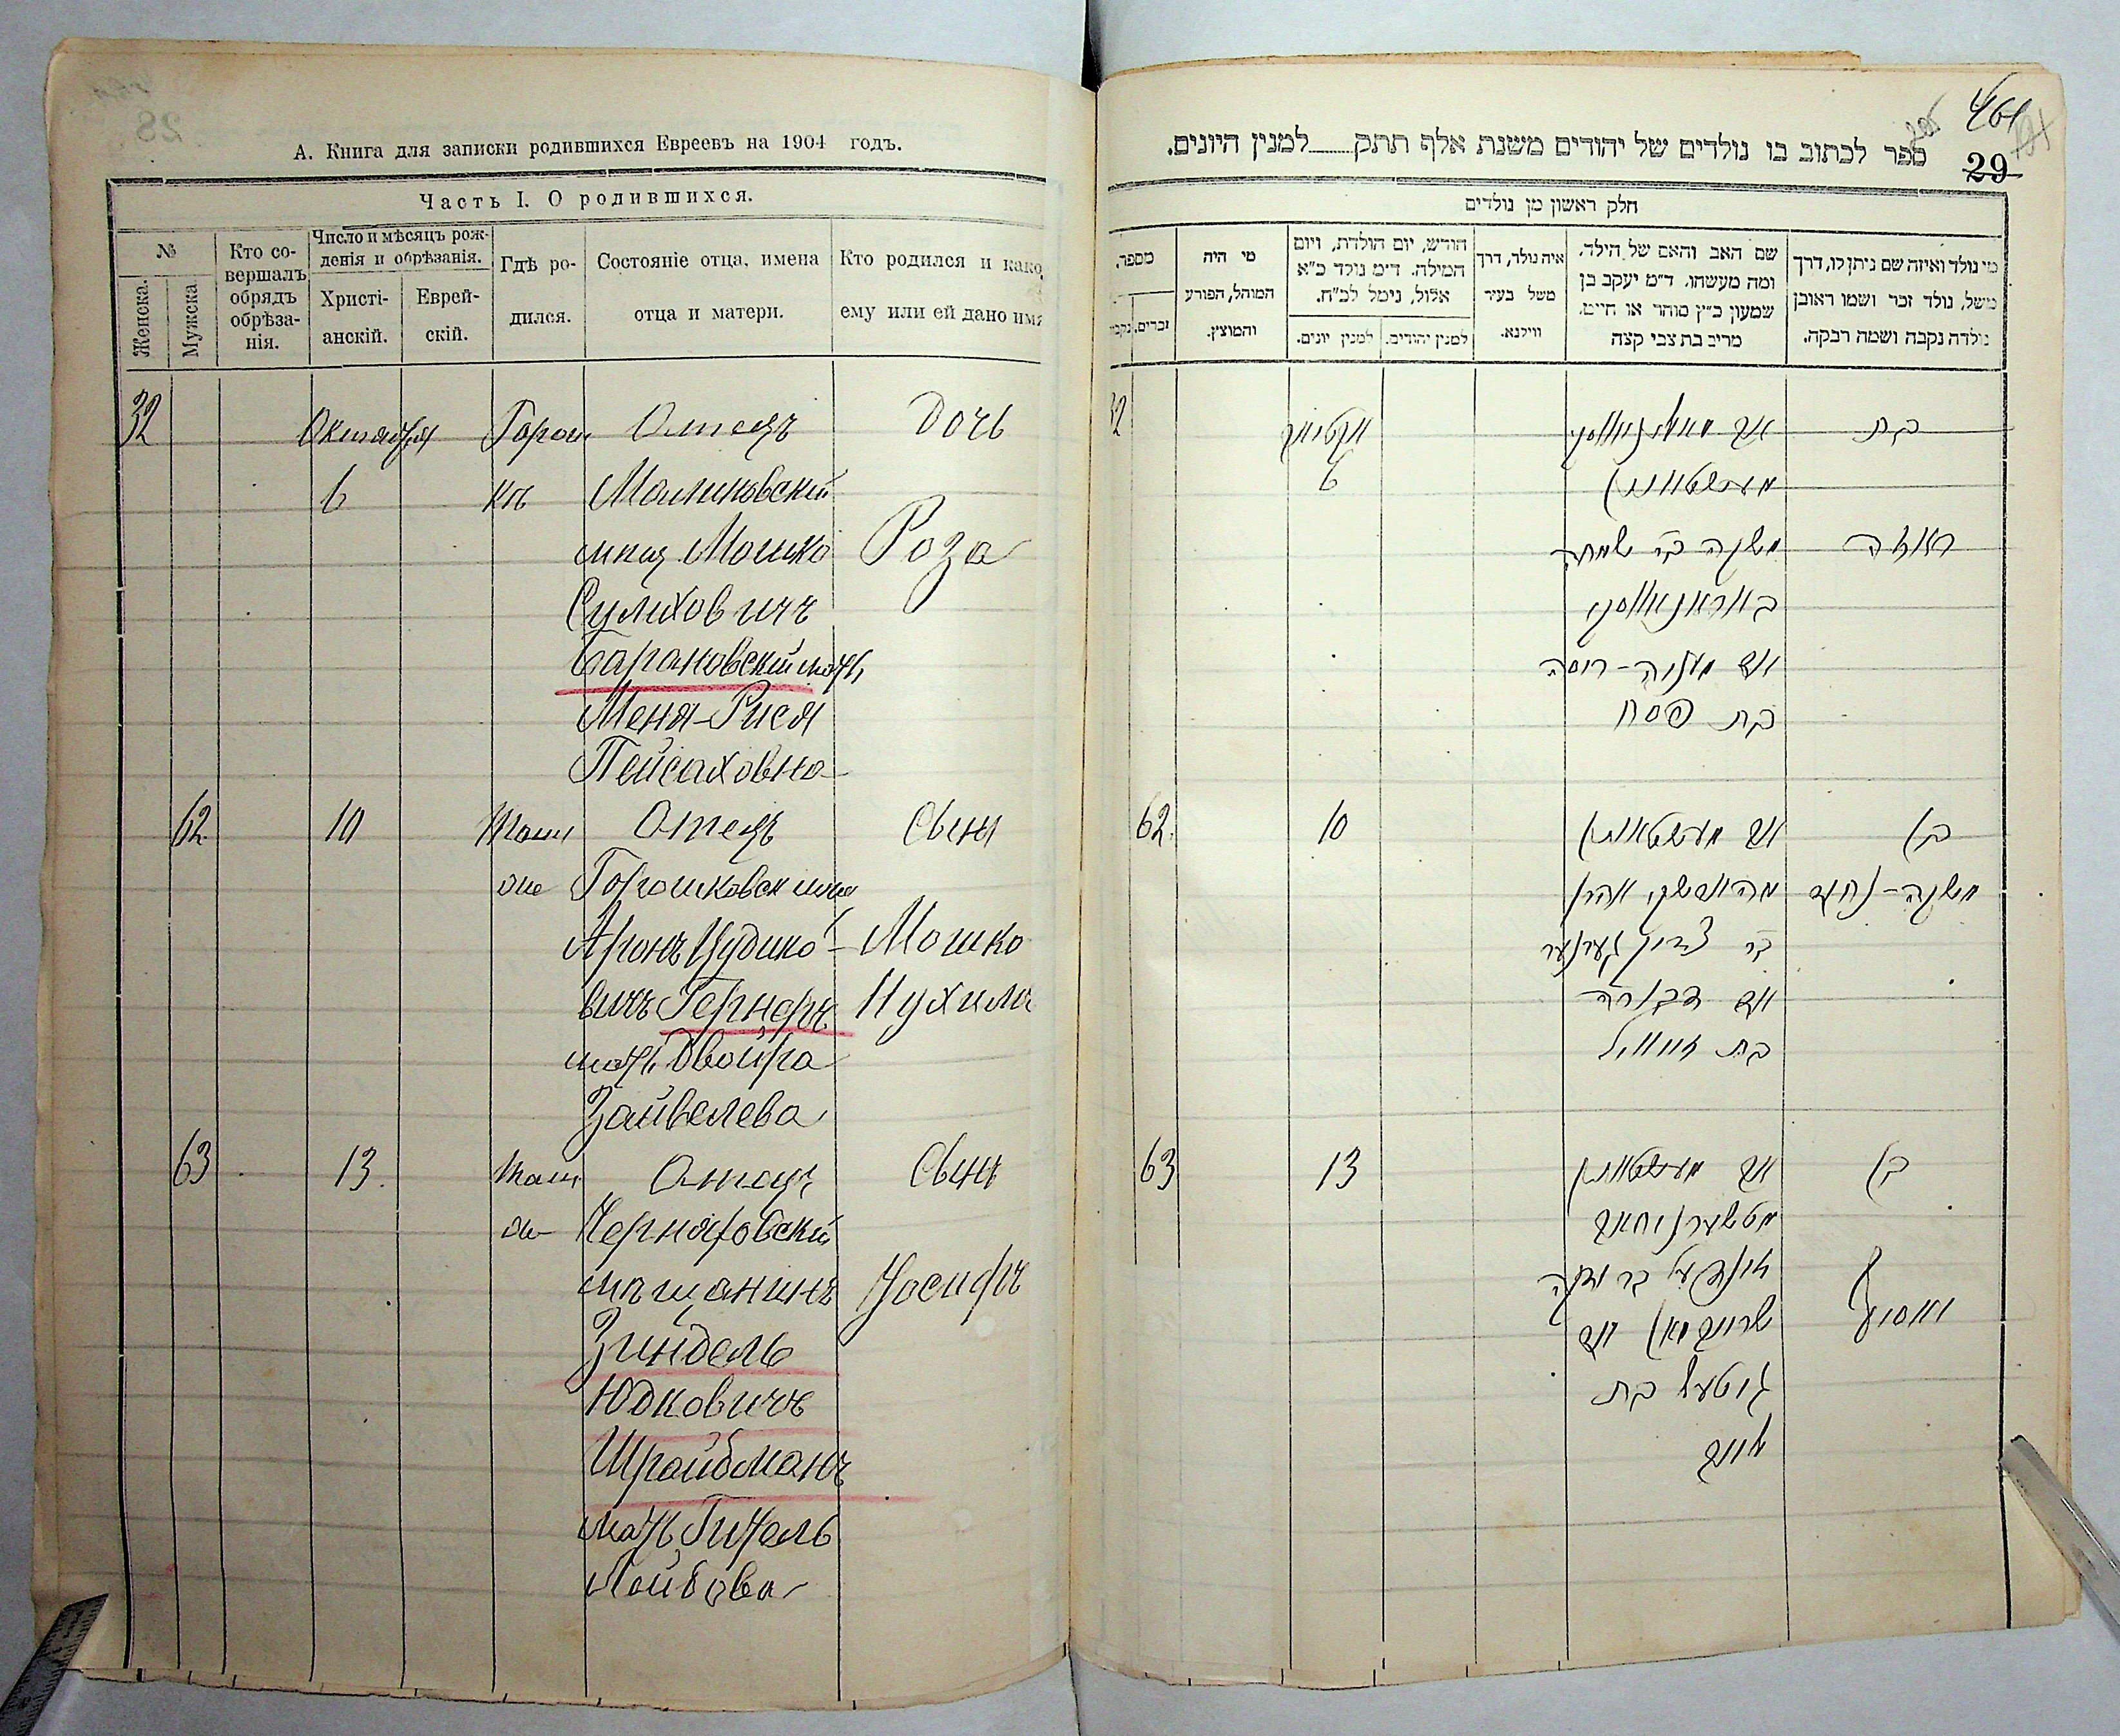 28
А. Книга для записки родившихся Евреевъ на 1904 годъ.
Часть I. О родившихся.
№
Женска.
Мужска
Кто совершалъ обрядъ обрѣзанія.
Число и мѣсяцъ рожденія и обрѣзанія.
Христіанскій.
Еврейскій.
Гдѣ родился.
Состояніе отца, имена
отца и матери.
Кто родился и како
ему или ей дано имя
32 Октября Горош Отецъ Дочь
6 къ Малиновскій
мещ Мошко Роза
Сулиховичъ
Барановскій мать
Меня-Рися
Пейсаховна
62 10 Отецъ Сынъ
Горошковск
Аронъ Цудико- Мошко
вичъ Гернеръ Нухимъ
мать Двойра
Зайвелева
63 13. Отецъ Сынъ
Черняховскій
мѣщанинъ Іосифъ
Зиндель
Юдковичъ
Шрайбманъ
мать Гитель
Лейбова
461
29
ספר לכתוב בו נולדים של יהודים משנת אלף תתק למנין היונים.
חלק ראשון מן נולדים
מי נולד ואיזה שם ניתן לו, דרך
משל, נולד זכר ושמו ראובן
נולדה נקבה ושמה רבקה.
שם האב והאם של הילד,
ומה מעשהו. ד״מ יעקב בן
שמעון כ״ץ סוחר או חייט,
מריב בת צבי קצה
איה נולד, דרך
משל בעיר
ווילנא.
חודש, יום הולדת, ויום
המילה. ד״מ נולד כ״א
אלול, נימל לכ״ח.
למנין יהודים.
למנין יונים.
מי היה
המוהל, הפורע
והמוצץ.
מספר,
זכרים,
נקבו
בת אב מאלינאווסקי אקטיאבר 32
מעשטשאנין 6
ראזא משקה בר שמחה
באראנאווסקי
אם מעניה-ריסה
בת פסח
בן אב מעשטשאנין 10 62.
משקה-נחום אהרן
בר גערנער
אם דבורה
בת זייוויל
בן אב מעשטשאנין 13 63
זינדעל בר יודקה
יאסיף שרייבמאן אם
גיטעל בת
לייב